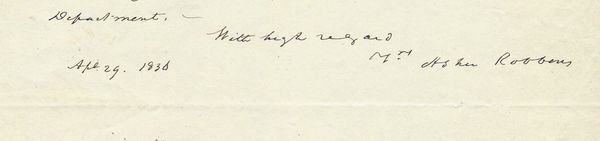 Department. —
With high regard
Yrs Asher Robbins
Apl 29. 1830